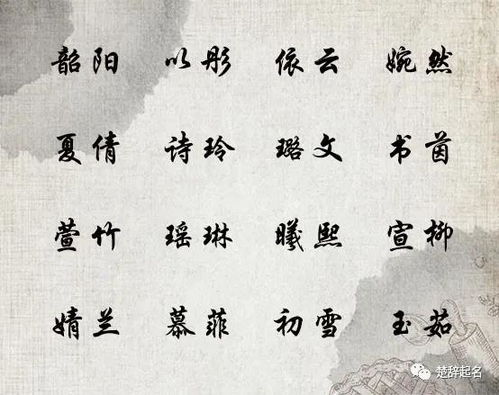 韶阳 以彤 依云 婉然
夏倩 诗玲 璐文 书茵
萱竹 瑶琳 曦熙 宣柳
婧兰 慕菲 初雪 玉茹
楚辞起名